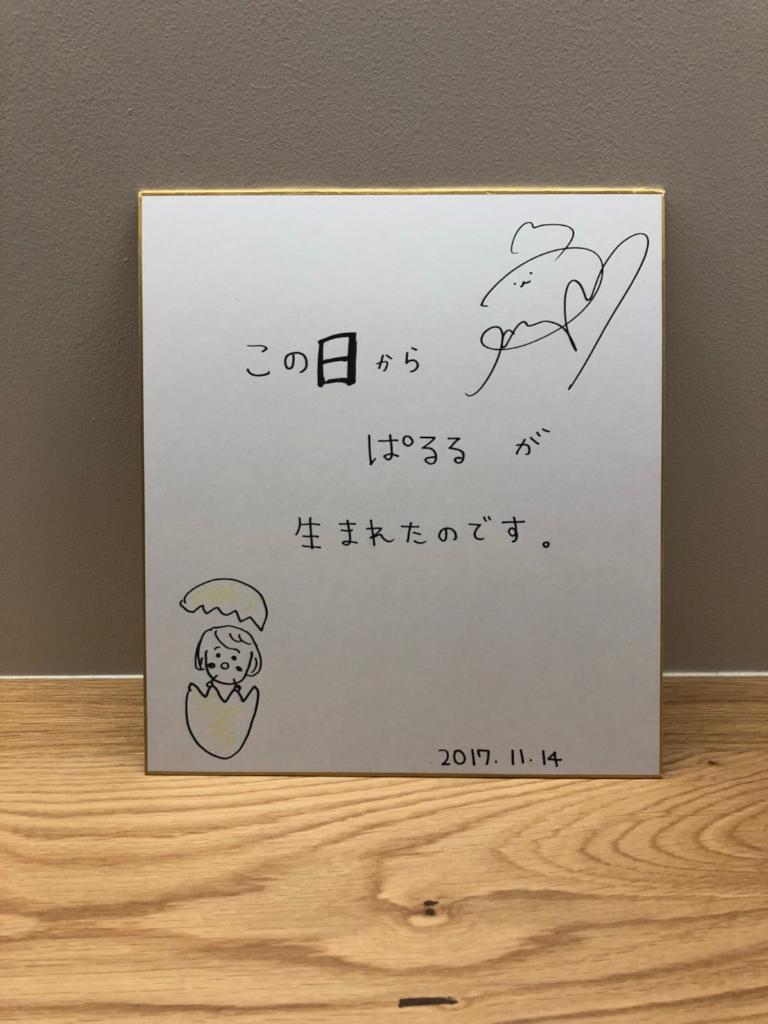 この日から
ぱるる が
生まれたのです。
2017.11.14